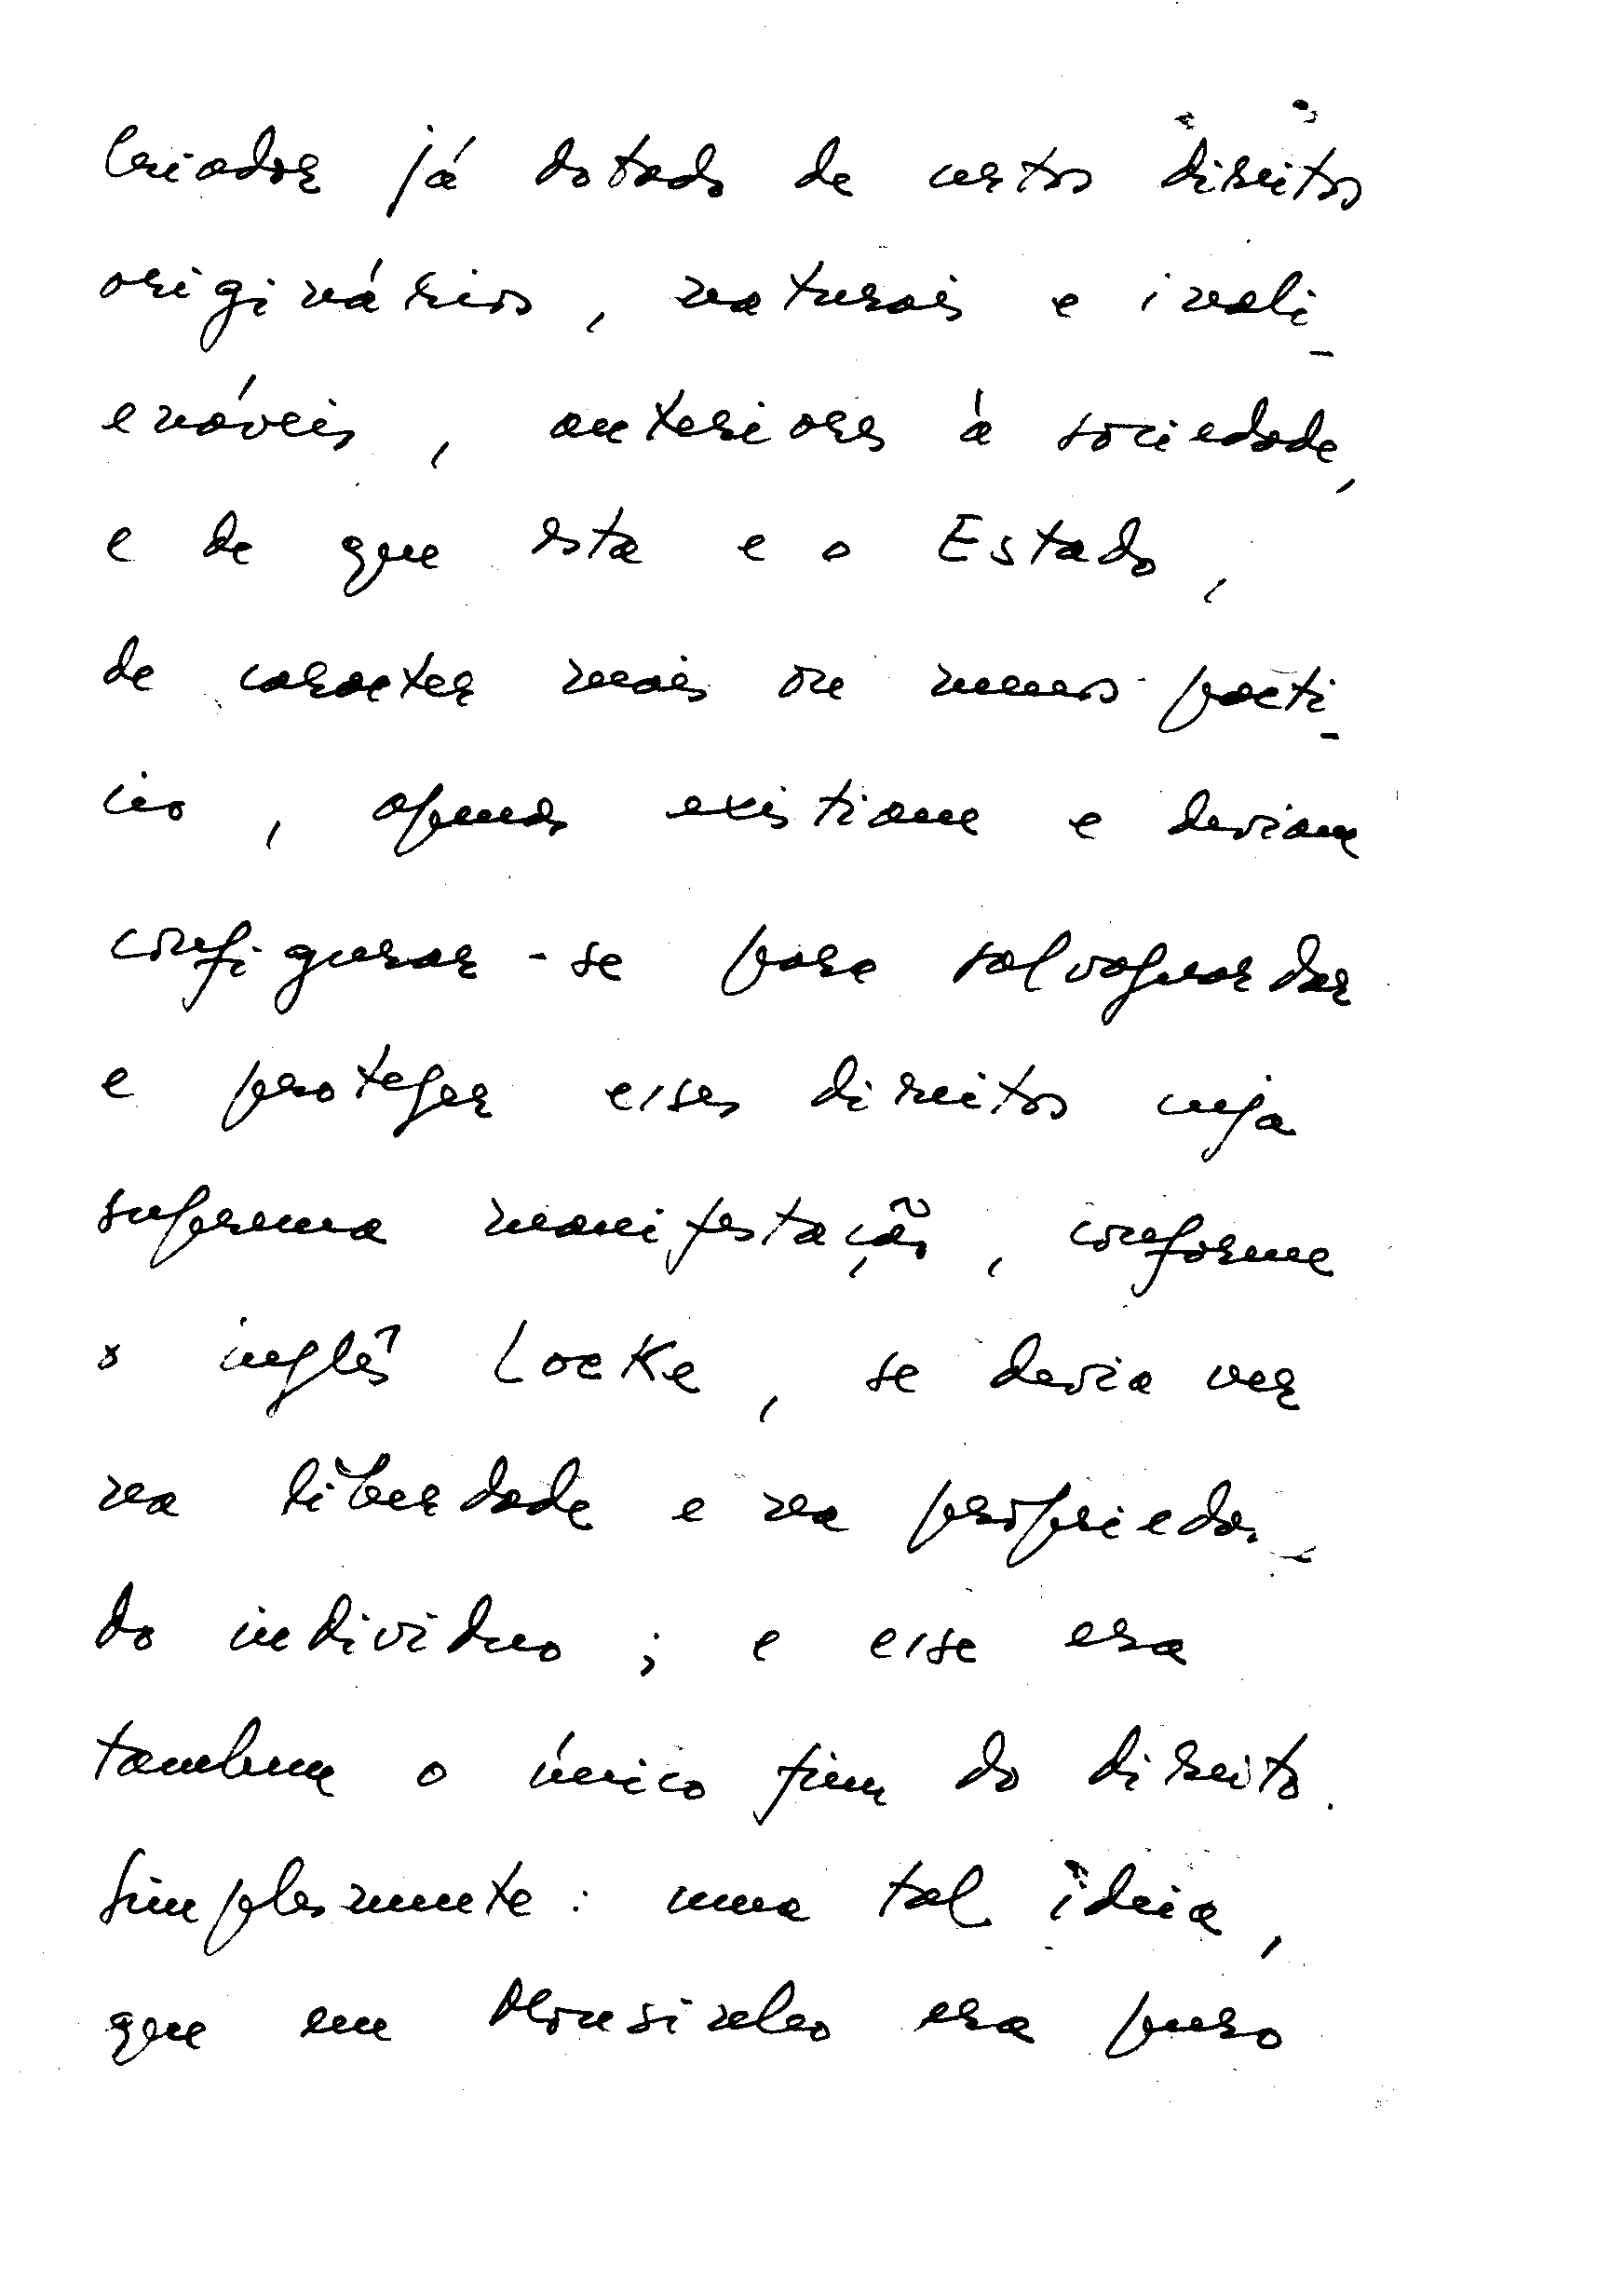 Criador já dotado de certos direitos
originários, naturais e inali-
enáveis, anteriores à sociedade,
e de que esta e o Estado,
de caracter mais ou menos pactí-
cio, apenas existiam e deviam
configurar-se para salvaguardar
e proteger esses direitos cuja
suprema manifestação, conforme
o inglês Locke, se devia ver
na liberdade e na propriedad.
do indivíduo; e esse era
tambem o único fim do direito.
Simplesmente: uma tal ideia,
que em Mousinho era puro